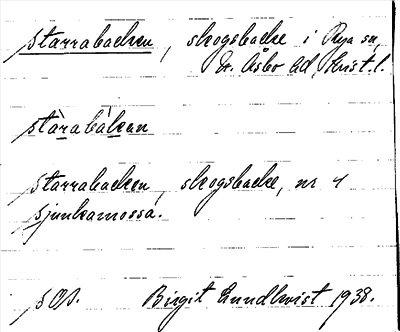 starrabacken, skogsbacke i Rya sn,
N. Åsbo hd, Krist. l.
stàrabàkan
starrabacken, skogsbacke, nr 4
sjunkamossa.
Birgit Lundkvist 1938.